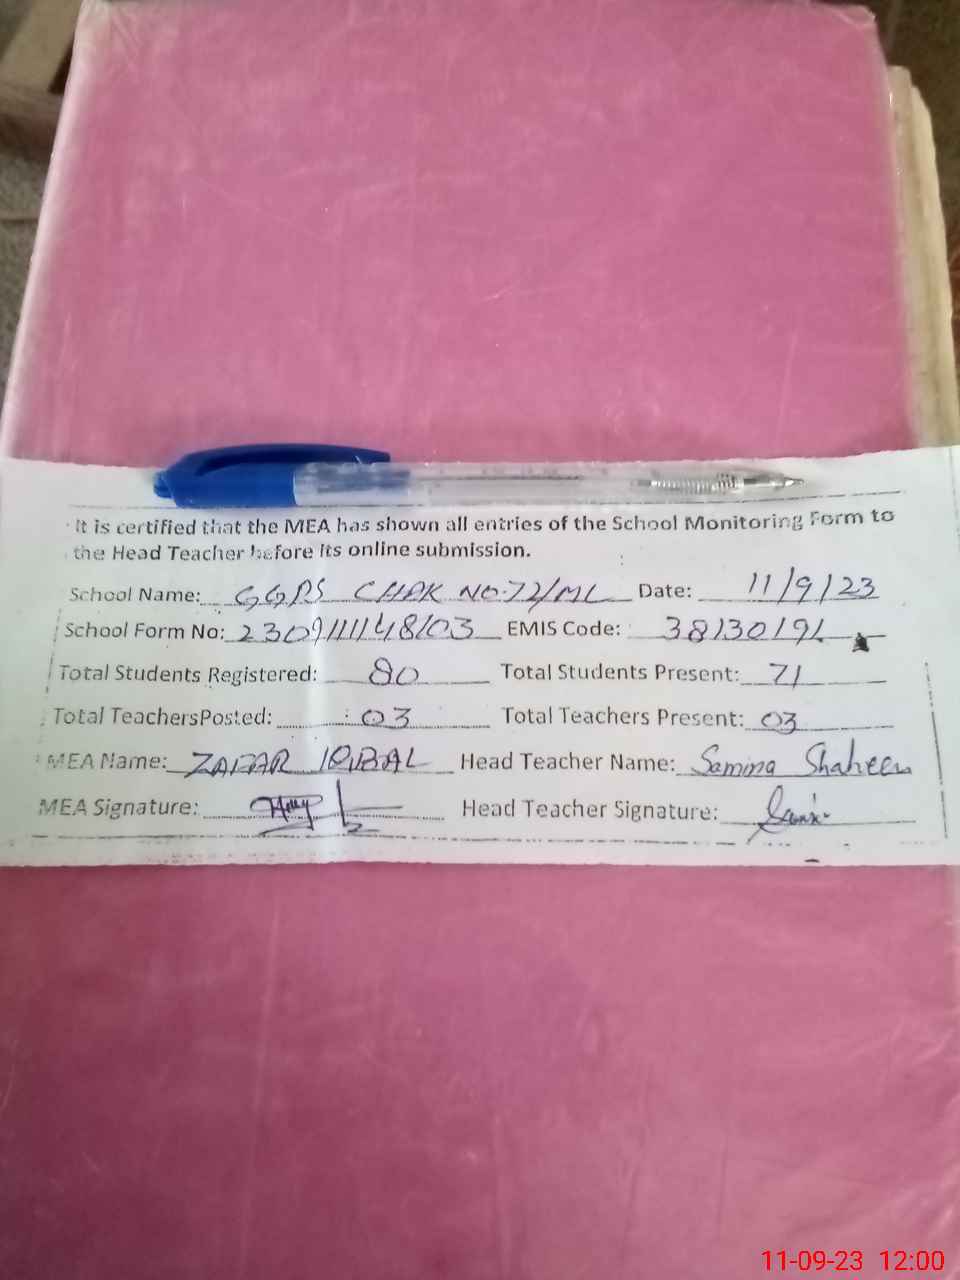 It is certified that the MEA has shown all entries of the School Monitoring Form to
the Head Teacher before its online submission.
School Name: GGPS CHAK NO.72/ML Date: 11/9/23
School Form No: 2309111148103 EMIS Code: 38130191
Total Students Registered: 80 Total Students Present: 71
Total TeachersPosted: 03 Total Teachers Present: 03
MEA Name: ZAFAR IQBAL Head Teacher Name: Samina Shaheen
MEA Signature: Head Teacher Signature:
11-09-23 12:00